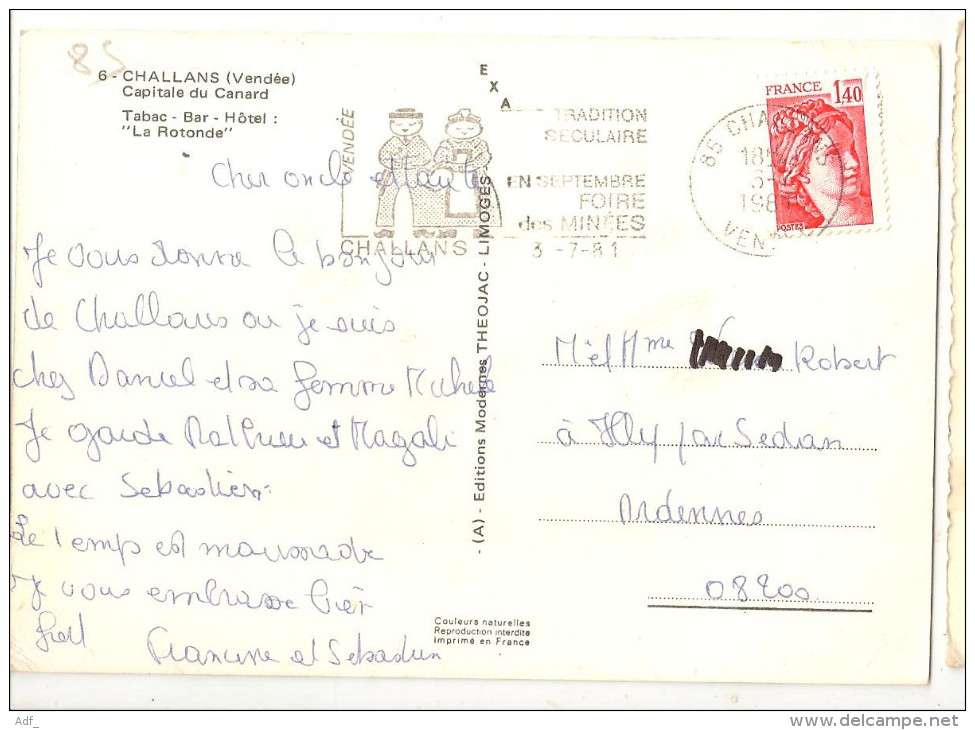 85
6 - CHALLANS (Vendée)
Capitale du Canard
Tabac - Bar - Hôtel :
"La Rotonde"
EXA
VENDÉE
CHALLANS
TRADITION
SECULAIRE
EN SEPTEMBRE
FOIRE
des MINÉES
3 -7-81
85 CHALLANS
18H
3-7
1981
VENDÉE
FRANCE
1,40
POSTES
Cher oncle et tante
Je vous donne le bonjour
de Challans ou je suis
chez Daniel et sa femme Michele
Je garde Mathieu et Magali
avec Sebastien.
Le temps est maussade
Je vous embrasse bien
fort
Francine et Sebastien
- (A) - Editions Modernes THEOJAC - LIMOGES -
Couleurs naturelles
Reproduction interdite
Imprimé en France
M et Mme Robert
à Illy par Sedan
Ardennes
08200
Adf_
delcampe.net